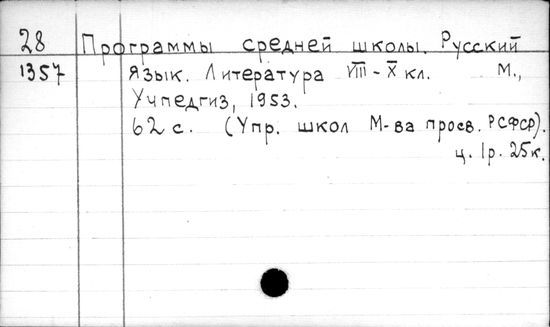 28 Программы средней школы. Русский
1357 язык. Литература VIII-X кл. М.,
Учпедгиз, 1953.
62 с. (Упр. школ М-ва просв. РСФСР).
ц. 1р. 25к.